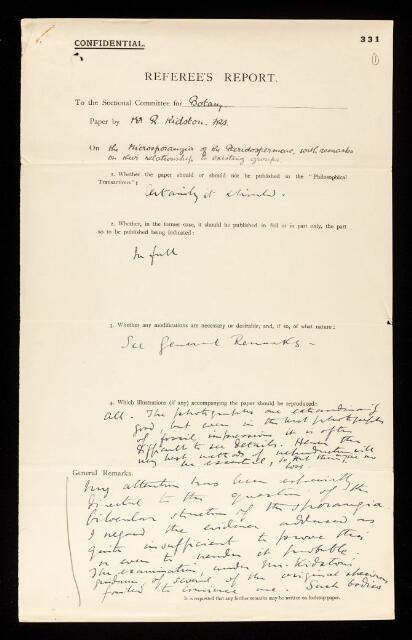 331
CONFIDENTIAL.
1
REFEREE'S REPORT.
To the Sectional Committee for Botany
Paper by Mr R. Kidston. FRS.
On the Microsporangia of the Pteridospermeae, with remarks
on their relationship to existing groups.
1. Whether the paper should or should not be published in the "Philosophical
Transactions":
Certainly it should.
2. Whether, in the former case, it should be published in full or in part only, the part
so to be published being indicated:
In full
3. Whether any modifications are necessary or desirable, and, if so, of what nature:
See General Remarks –
4. Which illustrations (if any) accompanying the paper should be reproduced:
All. The photographs are extraordinarily
good, but even in the best photographs
of fossil impressions it is often
difficult to see details. Hence the
very best methods of reproduction will
be essential, so that there be no
loss.
General Remarks.
My attention has been especially
directed to the question of the
bilocular structure of the sporangia.
I regard the evidence adduced as
quite insufficient to prove this
or even to render it probable.
The examination under Mr. Kidston's
guidance of several of the original specimens
failed to convince me. Such bodies
It is requested that any further remarks may be written on foolscap paper.